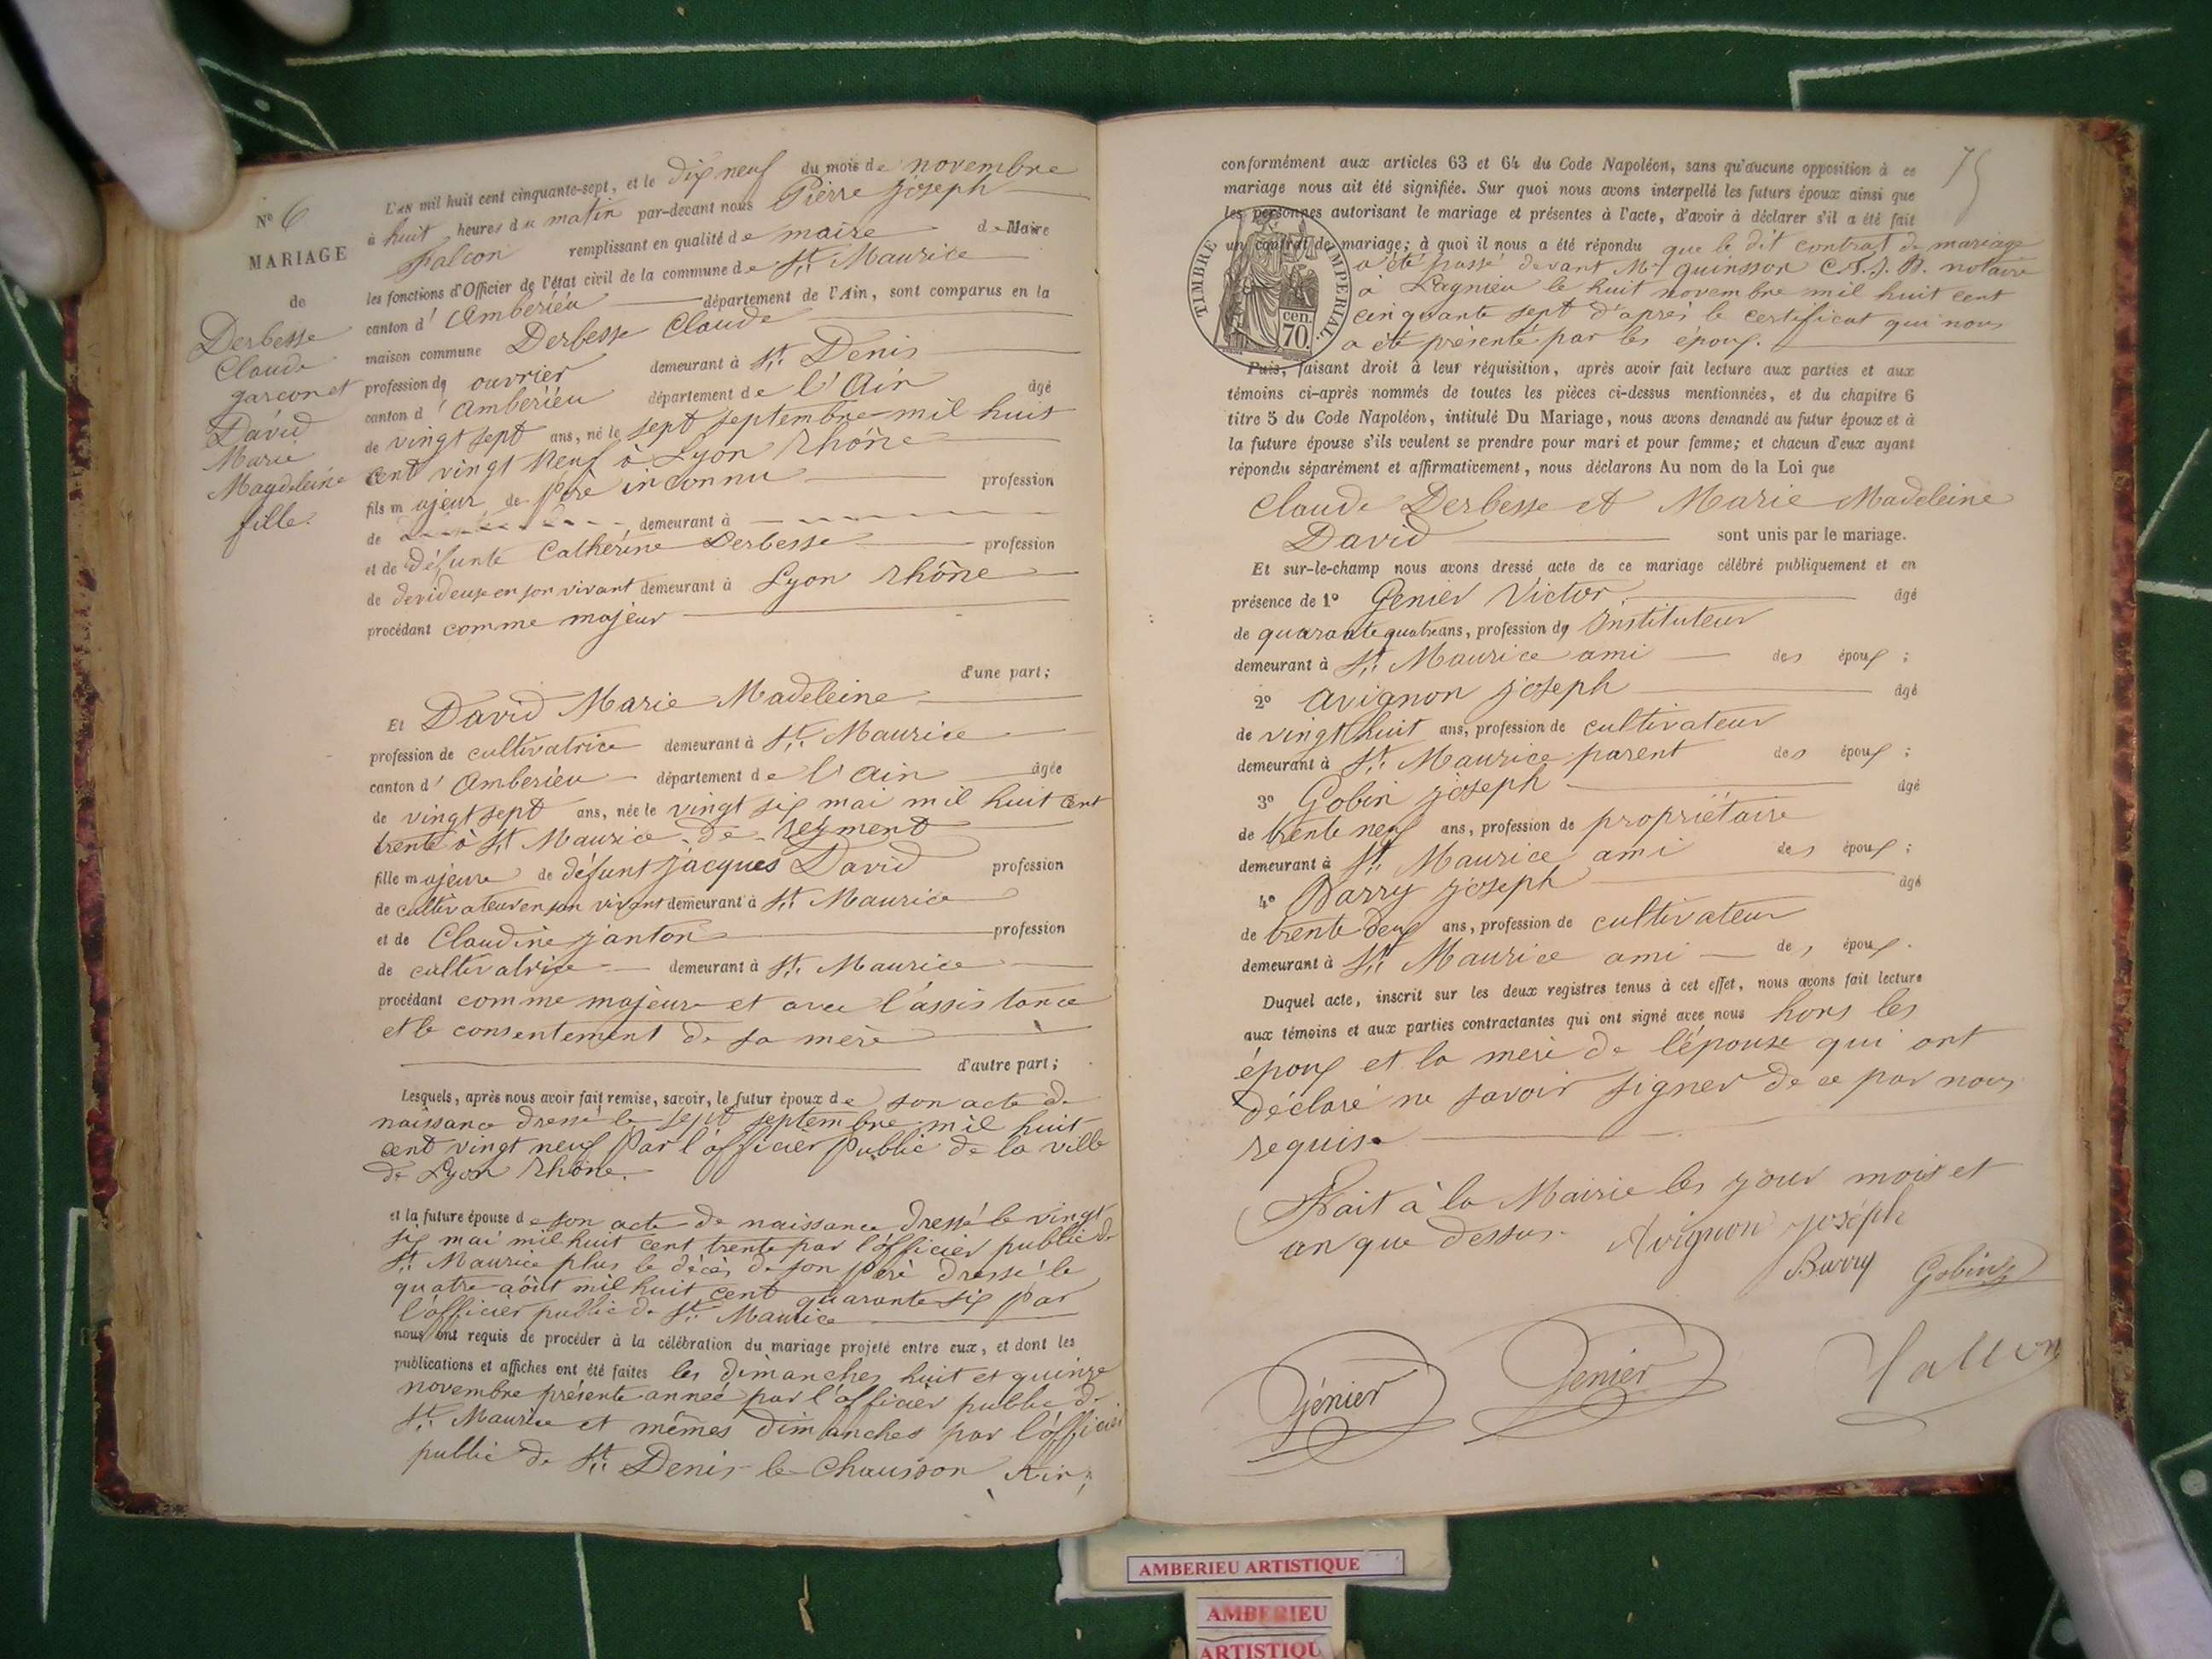 Nº 6
MARIAGE
de
Derbesse
Claude
garcon et
David
Marie
Magdeleine
fille.
L'an mil huit cent cinquante-sept, et le dix neuf du mois de novembre
à huit heures du matin par-devant nous Pierre joseph
Falcon remplissant en qualité de maire de Maire
les fonctions d'Officier de l'état civil de la commune de St Maurice
canton d' Ambérieu département de l'Ain, sont comparus en la
maison commune Derbesse Claude
profession de ouvrier demeurant à St Denis
canton d' Ambérieu département de l'Ain âgé
de vingt sept ans, né le sept septembre mil huit
cent vingt neuf à Lyon Rhône
fils majeur de père inconnu profession
de demeurant à
et de défunte Cathérine Derbesse profession
de devideuse en son vivant demeurant à Lyon Rhône
procédant comme majeur
d'une part;
Et David Marie Madeleine
profession de cultivatrice demeurant à St Maurice
canton d' Amberieu département de l'ain âgée
de vingt sept ans, née le vingt six mai mil huit cent
trente à St Maurice de reyment
fille majeure de défunt jacques David profession
de cultivateur en son vivant demeurant à St Maurice
et de Claudine janton profession
de cultivatrice demeurant à St Maurice
procédant comme majeure et avec l'assistance
et le consentement de sa mère
d'autre part;
Lesquels, après nous avoir fait remise, savoir, le futur époux de son acte de
naissance dressé le sept septembre mil huit
cent vingt neuf par l'officier public de la ville
de Lyon Rhône.
et la future épouse de son acte de naissance dressé le vingt
six mai mil huit cent trente par l'officier public de
St Maurice plus le décès de son père dressé le
quatre août mil huit cent quarante six par
l'officier public de St Maurice
nous ont requis de procéder à la célébration du mariage projeté entre eux, et dont les
publications et affiches ont été faites les dimanches huit et quinze
novembre présente année par l'officier public de
St Maurice et mêmes dimanches par l'officier
public de St Denis le Chausson Ain;
75
conformément aux articles 63 et 64 du Code Napoléon, sans qu'aucune opposition à ce
mariage nous ait été signifiée. Sur quoi nous avons interpellé les futurs époux ainsi que
les personnes autorisant le mariage et présentes à l'acte, d'avoir à déclarer s'il a été fait
un contrat de mariage; à quoi il nous a été répondu que le dit contrat de mariage
a été passé devant Me quinsson notaire
à Lagnieu le huit novembre mil huit cent
cinquante sept d'après le certificat qui nous
a été présenté par les époux.
TIMBRE IMPERIAL
cen.
70.
Puis, faisant droit à leur réquisition, après avoir fait lecture aux parties et aux
témoins ci-après nommés de toutes les pièces ci-dessus mentionnées, et du chapitre 6
titre 5 du Code Napoléon, intitulé Du Mariage, nous avons demandé au futur époux et à
la future épouse s'ils veulent se prendre pour mari et pour femme; et chacun d'eux ayant
répondu séparément et affirmativement, nous déclarons Au nom de la Loi que
Claude Derbesse et Marie Madeleine
David sont unis par le mariage.
Et sur-le-champ nous avons dressé acte de ce mariage célébré publiquement et en
présence de 1º Genier Victor âgé
de quarante quatre ans, profession de Instituteur
demeurant à St Maurice ami des époux;
2º avignon joseph âgé
de vingt huit ans, profession de cultivateur
demeurant à St Maurice parent des époux;
3º Gobin joseph âgé
de trente neuf ans, profession de propriétaire
demeurant à St Maurice ami des époux;
4º Barry joseph âgé
de trente deux ans, profession de cultivateur
demeurant à St Maurice ami des époux.
Duquel acte, inscrit sur les deux registres tenus à cet effet, nous avons fait lecture
aux témoins et aux parties contractantes qui ont signé avec nous hors les
époux et la mère de l'épouse qui ont
déclaré ne savoir signer de ce par nous
requise
Fait à la Mairie les jour mois et
an que dessus. Avignon joséph
Barry Gobin
Génier Genier Falcon
AMBERIEU ARTISTIQUE
AMBERIEU
ARTISTIQU